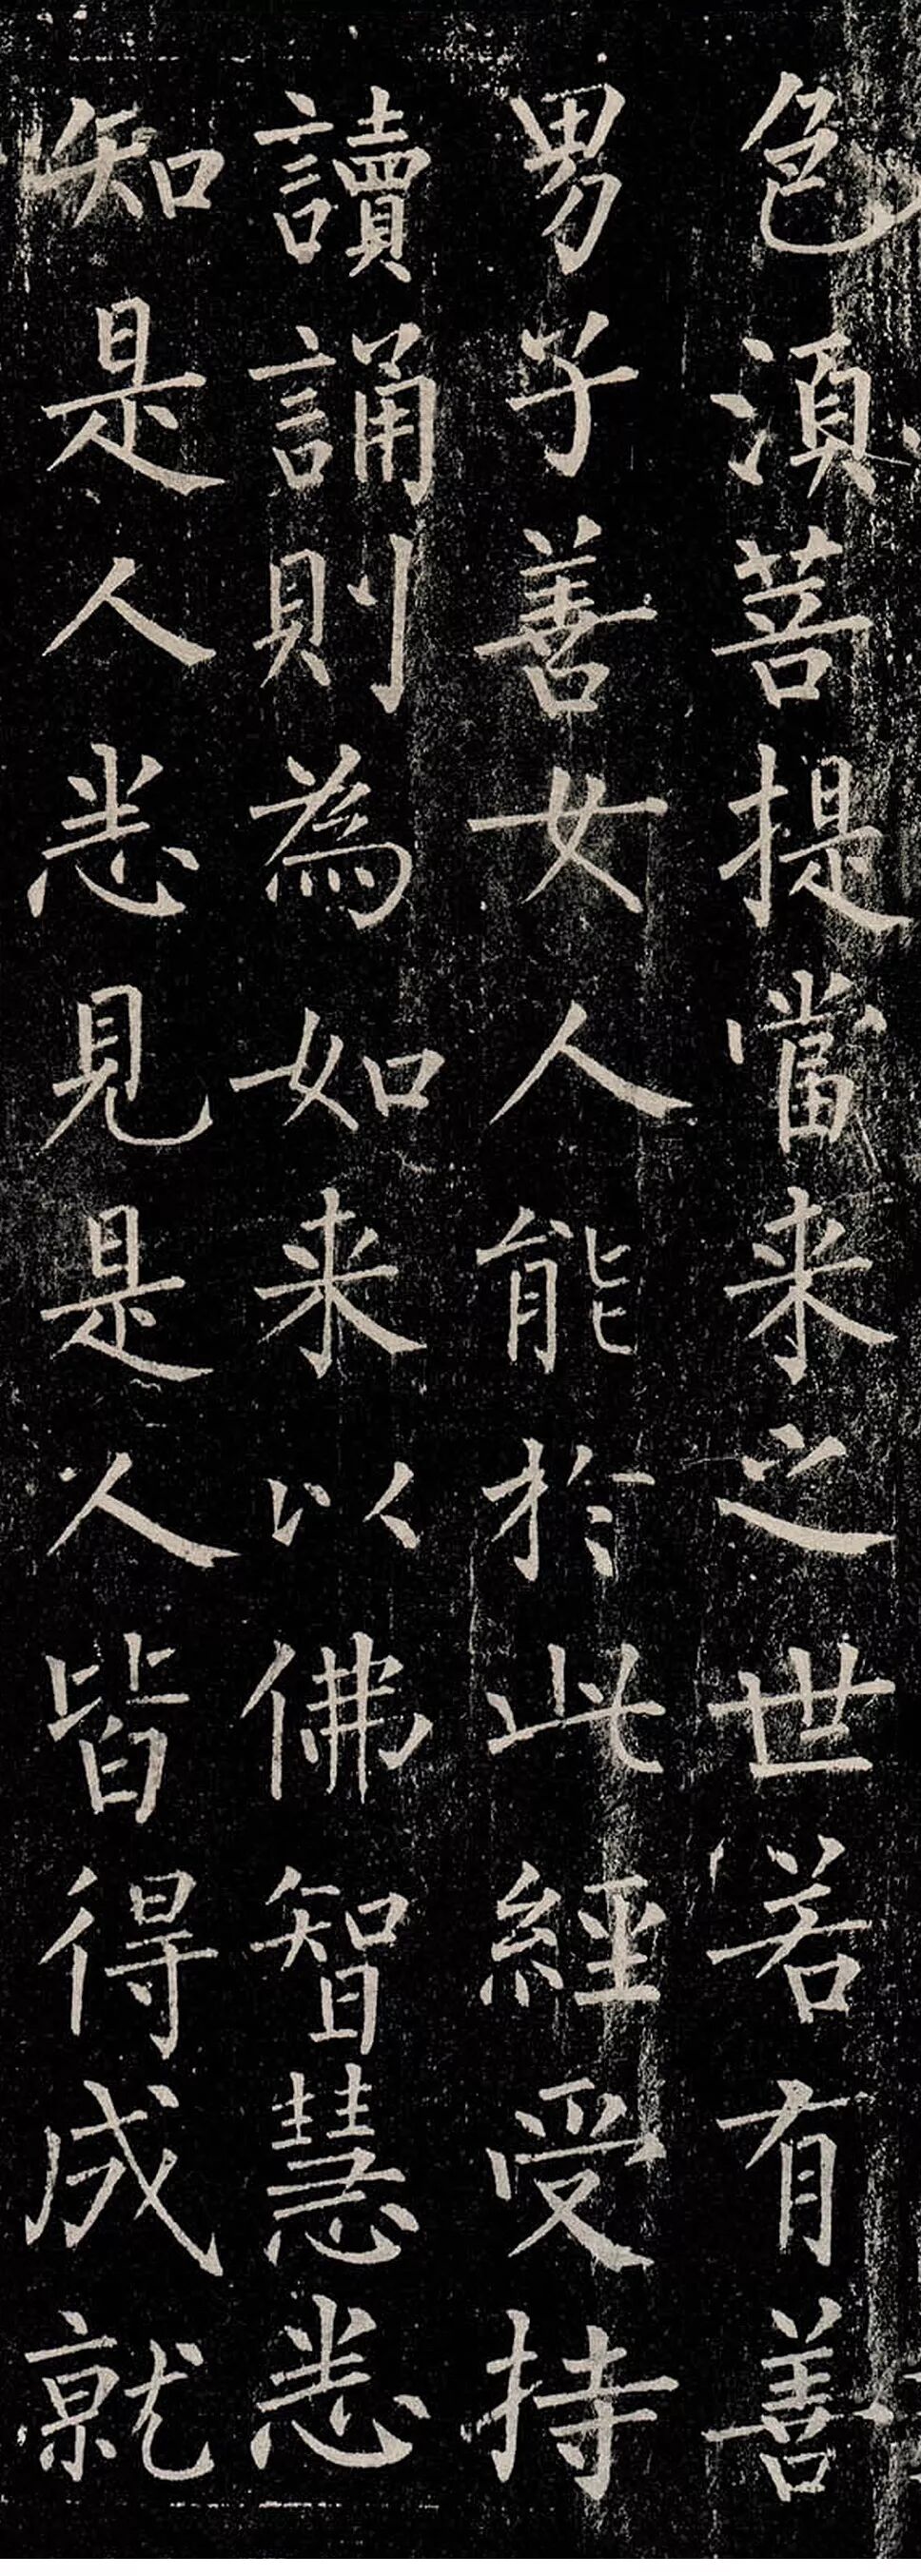 色湏菩提當来之世若有善
男子善女人能於此經受持
讀誦則為如来以佛智慧悉
知是人悉見是人皆得成就